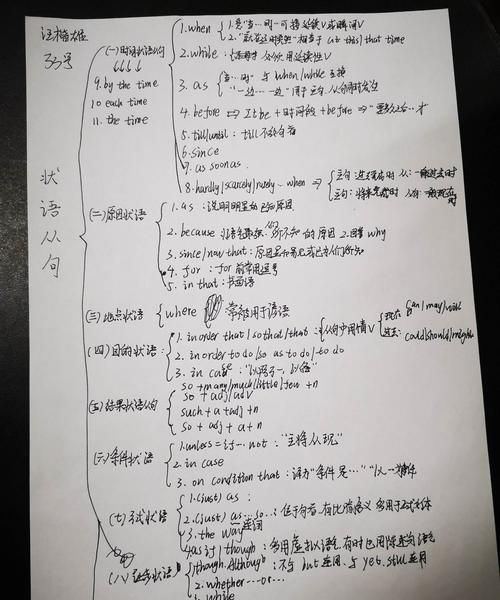 汪楷雄
33号
状语从句
(一)时间状语从句
1.when
1.意"当…时"可接延续V或瞬间V
2."就在这时突然"相当于(at this/that time
2. while:
必须用延续性V
3. as
"当…时"与when/while互换
"一边…一边"用于主句、从句同时发生
4. before ⇒ It be + 时间段 + before ⇒ "要多久之后…才
5. till/until: till不放句首
6. since
7. as soon as
8. hardly/scarcely/rarely…when ⇒
主句:过去完成时 从:一般过去时
主句:将来完成时 从句:一般现在时
9. by the time
10 each time
11. the time
(二)原因状语
1. as:说明明显的已知原因
2. because 语气最强 所不知的原因 2.回答why
3. since/now that:原因显而易见或已为人们所知
4. for:for前常用逗号
5. in that:书面语
(三)地点状语
where 常被用于谚语
(四)目的状语:
1. in order that/so that/that:从句中用情V
现在 can/may/will
过去: could/should/might
2. in order to do/so as to do/to do
3. in case:"以防万一,以免"
(五)结果状语从句
so +many/much/little/few +n
so + adj/adv
such + a + adj + n
so + adj + a + n
(六)条件状语
1. unless = if…not:"主将从现"
2. in case
3. on condition that:译为"条件是…"
(七)方式状语
1.(just) as:
2.(just) as…so…:位于句首,有比喻含义 多用于正式文体
3. the way
4.as if/though:多用虚拟语气,有时也用陈述语气
(八)让步状语
1.though.Although:不与but连用,与yet, still连用
2. whether…or…
3. while